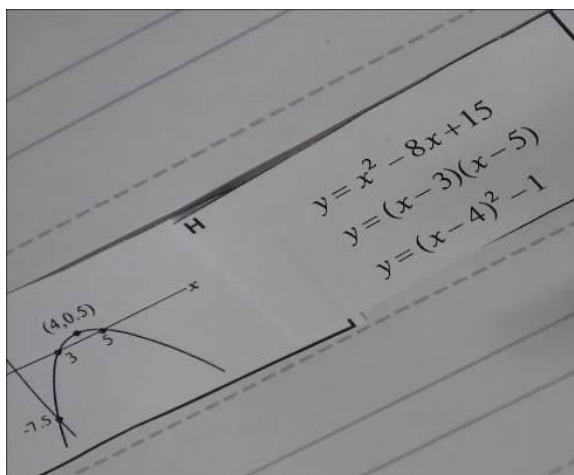 H
y = x² − 8x + 15
y = (x − 3)(x − 5)
y = (x − 4)² − 1
x
(4,0.5)
3
5
-7.5